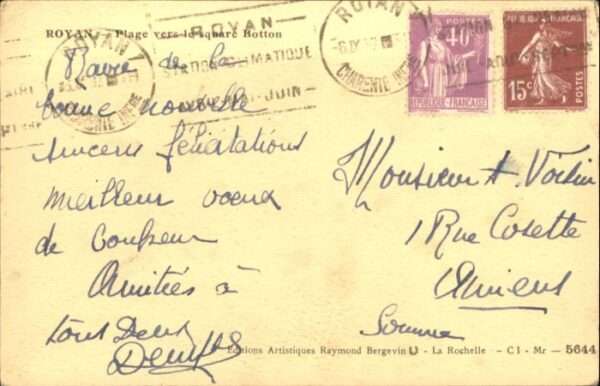 ROYAN - Plage vers le square Botton
ROYAN
CHARENTE INFRE
ROYAN
STATION CLIMATIQUE
JUIN
ROYAN
CHARENTE INFRE
POSTES
40c
REPUBLIQUE-FRANÇAISE
FRANÇAISE
15c
POSTES
Ravie de la
bonne nouvelle
sincères félicitations
meilleur voeux
de bonheur
Amitiés à
tous deux
Monsieur A. Voisin
1 Rue Cosette
Amiens
Somme
Editions Artistiques Raymond Bergevin - La Rochelle - CI - Mr - 5644